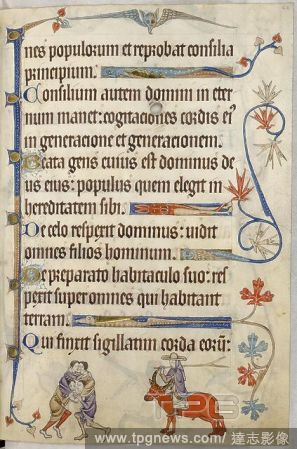 nes populorum et reprobat consilia
principium.
Consilium autem domini in eter
num manet: cogitaciones cordis eiʼ
in generacione et generacionem.
Beata gens cuius est dominus de
us eius: populus quem elegit in
hereditatem sibi.
De celo respexit dominus: uidit
omnes filios hominum.
De preparato habitaculo suo: res
pexit super omnes qui habitant
terram.
Qui finxit sigillatim corda eorū:
TPG
www.tpgnews.com/ 達志影像